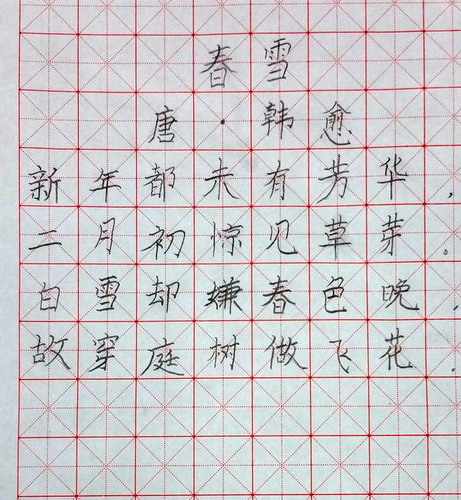 春雪
唐·韩愈
新年都未有芳华，
二月初惊见草芽。
白雪却嫌春色晚，
故穿庭树做飞花.